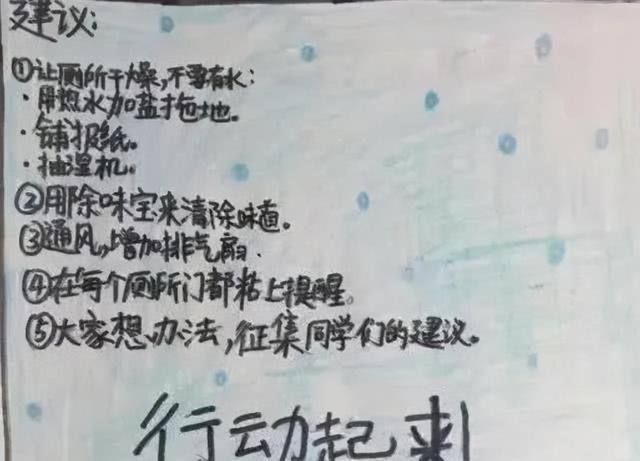 建议:
①让厕所干燥,不要有水:
·用热水加盐拖地。
·铺报纸。
·抽湿机。
②用除味宝来清除味道。
③通风,增加排气扇.
④在每个厕所门都粘上提醒。
⑤大家想办法,征集同学们的建议。
行动起来